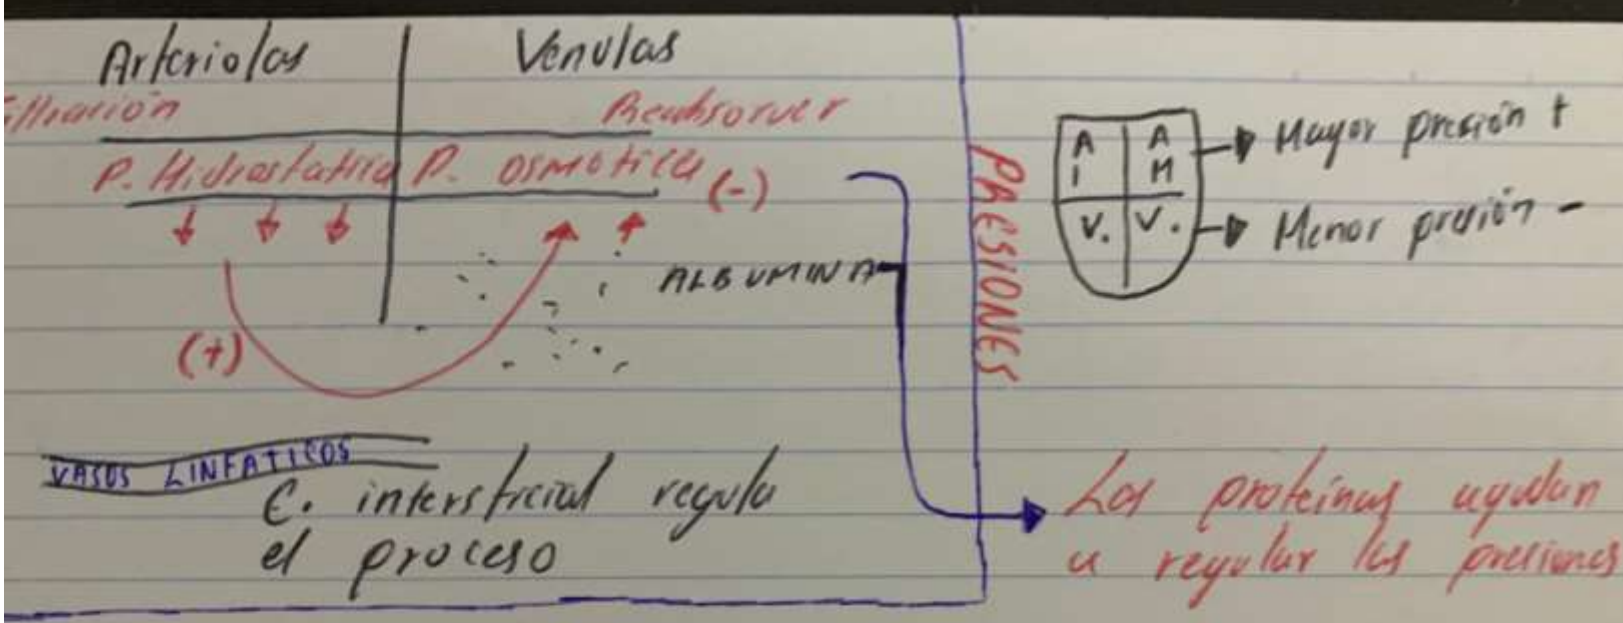 Arteriolas
Venulas
filtración
Reabsorver
P. Hidrostatica
P. osmotica (-)
ALBUMINA
(+)
VASOS LINFATICOS
E. intersticial regula
el proceso
PRESIONES
A A
I M
V. V.
Mayor presión +
Menor presión -
Las proteinas ayudan
a regular las presiones